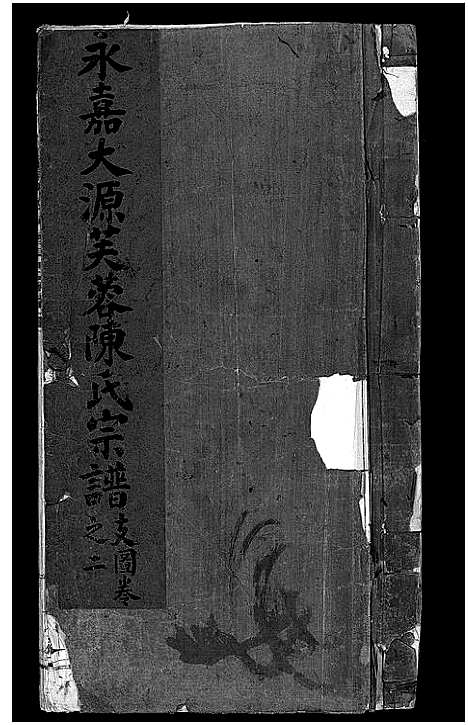 永嘉大源芙蓉陳氏宗譜
支圖卷
之二